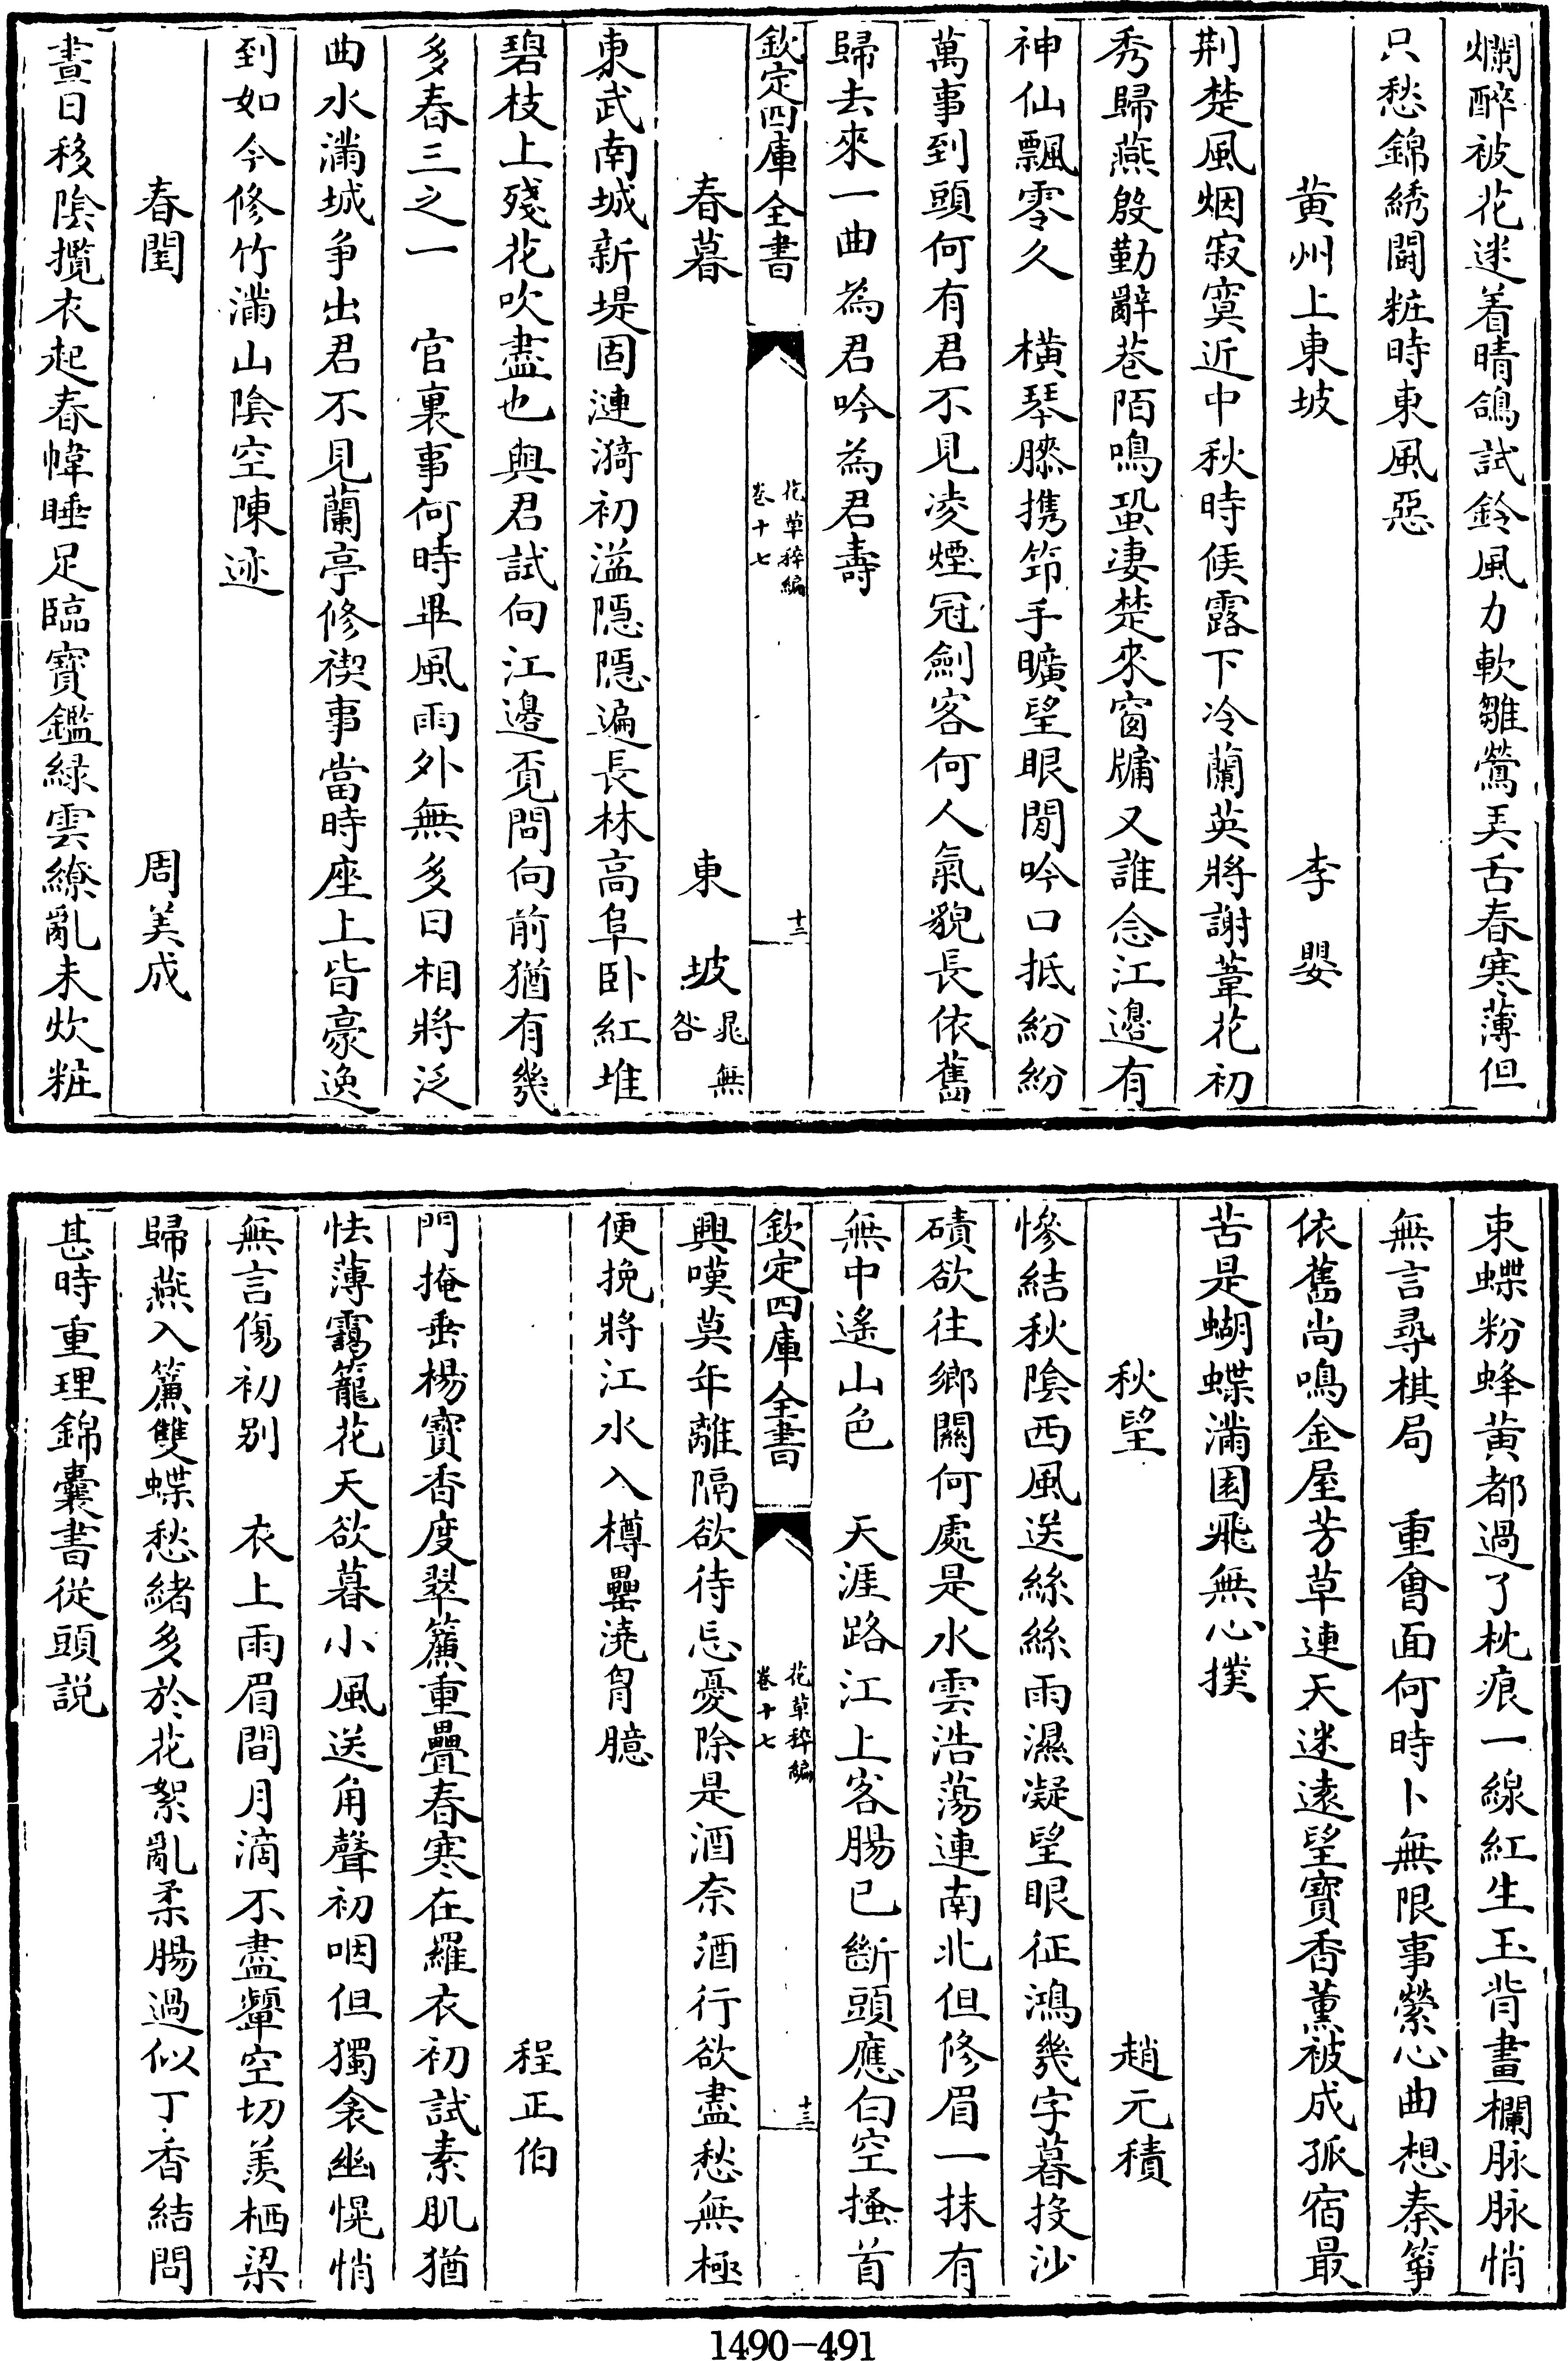 爛醉被花迷着晴鴿試鈴風力軟雛鶯弄舌春寒薄但
只愁錦綉鬧粧時東風惡
黄州上東坡　李嬰
荆楚風烟寂寞近中秋時候露下冷蘭英將謝葦花初
秀歸燕殷勤辭巷陌鳴蛩凄楚來窗牖又誰念江邊有
神仙飄零久　橫琴膝携笻手曠望眼閒吟口抵紛紛
萬事到頭何有君不見凌煙冠劍客何人氣貌長依舊
歸去來一曲為君吟為君壽
欽定四庫全書　花草稡編卷十七　十二
春暮　東坡 晁無咎
東武南城新堤固漣漪初溢隠隠遍長林高阜卧紅堆
碧枝上殘花吹盡也與君試向江邊覓問向前猶有幾
多春三之一　官裏事何時畢風雨外無多日相將泛
曲水滿城争出君不見蘭亭修禊事當時座上皆豪逸
到如今修竹滿山陰空陳迹
春閨　周美成
晝日移陰攬衣起春幃睡足臨寳鑑緑雲繚亂未炊粧
束蝶粉蜂黄都過了枕痕一線紅生玉背畫欄脉脉悄
無言尋棋局　重會面何時卜無限事縈心曲想秦筝
依舊尚鳴金屋芳草連天迷遠望寳香薰被成孤宿最
苦是蝴蝶滿園飛無心撲
秋望　趙元積
慘結秋陰西風送絲絲雨濕凝望眼征鴻幾字暮投沙
磧欲往鄉關何處是水雲浩蕩連南北但修眉一抹有
無中遙山色　天涯路江上客腸已斷頭應白空搔首
欽定四庫全書　花草稡編卷十七　十三
興嘆莫年離隔欲待忘憂除是酒奈酒行欲盡愁無極
便挽將江水入樽罍澆胷臆
程正伯
門掩垂楊寳香度翠簾重疊春寒在羅衣初試素肌猶
怯薄靄籠花天欲暮小風送角聲初咽但獨衾幽愰悄
無言傷初别　衣上雨眉間月滴不盡顰空切羨栖梁
歸燕入簾雙蝶愁緒多於花絮亂柔腸過似丁香結問
甚時重理錦囊書從頭説
1490-491